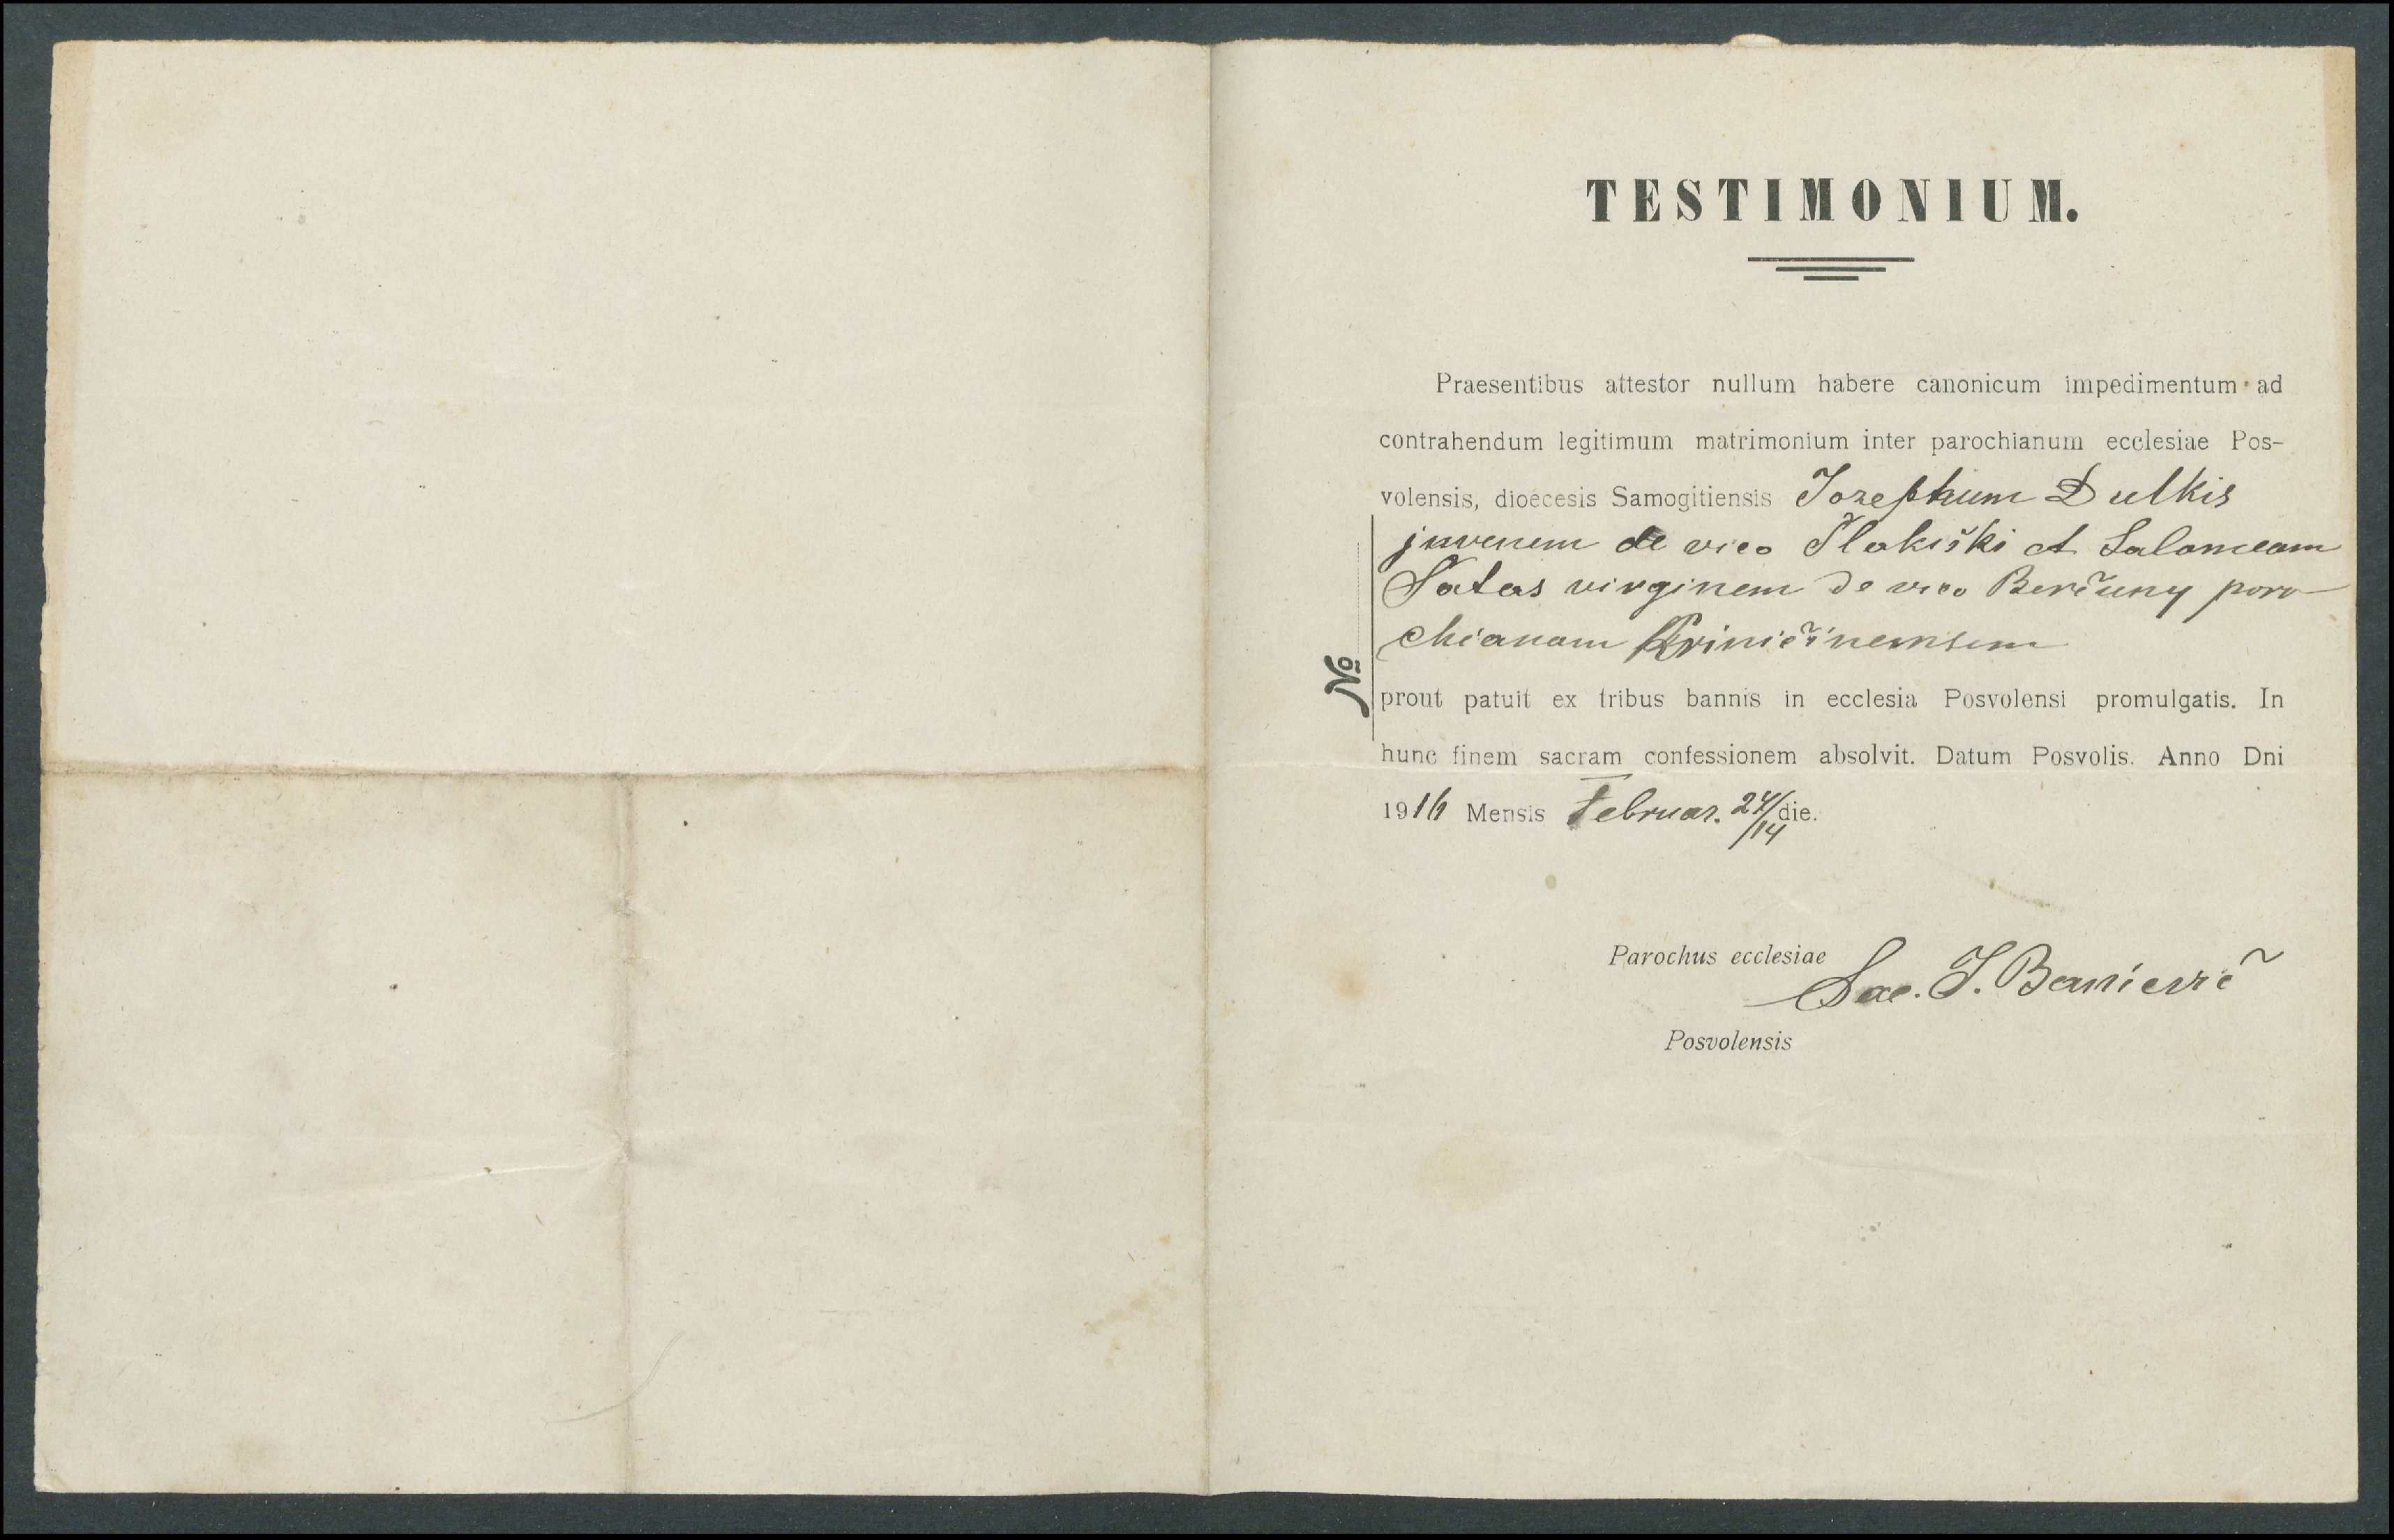 TESTIMONIUM.
Praesentibus attestor nullum habere canonicum impedimentum ad
contrahendum legitimum matrimonium inter parochianum ecclesiae Pos-
volensis, dioecesis Samogitiensis Jozephum Dulkis
juvenem de vico Slakiški et Salomeam
Satas virginem de vico Berčuny paro-
chianam Kriničinensem
№
prout patuit ex tribus bannis in ecclesia Posvolensi promulgatis. In
hunc finem sacram confessionem absolvit. Datum Posvolis. Anno Dni
1916 Mensis Februar. 27/14 die.
Parochus ecclesiae
Sac. J.
Posvolensis